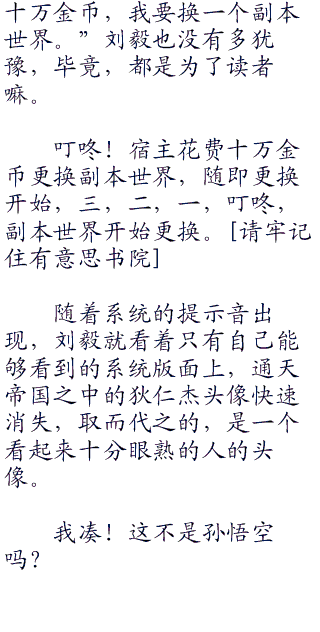 十万金币，我要换一个副本
世界。”刘毅也没有多犹
豫，毕竟，都是为了读者
嘛。
叮咚！宿主花费十万金
币更换副本世界，随即更换
开始，三，二，一，叮咚，
副本世界开始更换。[请牢记
住有意思书院]
随着系统的提示音出
现，刘毅就看着只有自己能
够看到的系统版面上，通天
帝国之中的狄仁杰头像快速
消失，取而代之的，是一个
看起来十分眼熟的人的头
像。
我凑！这不是孙悟空
吗？